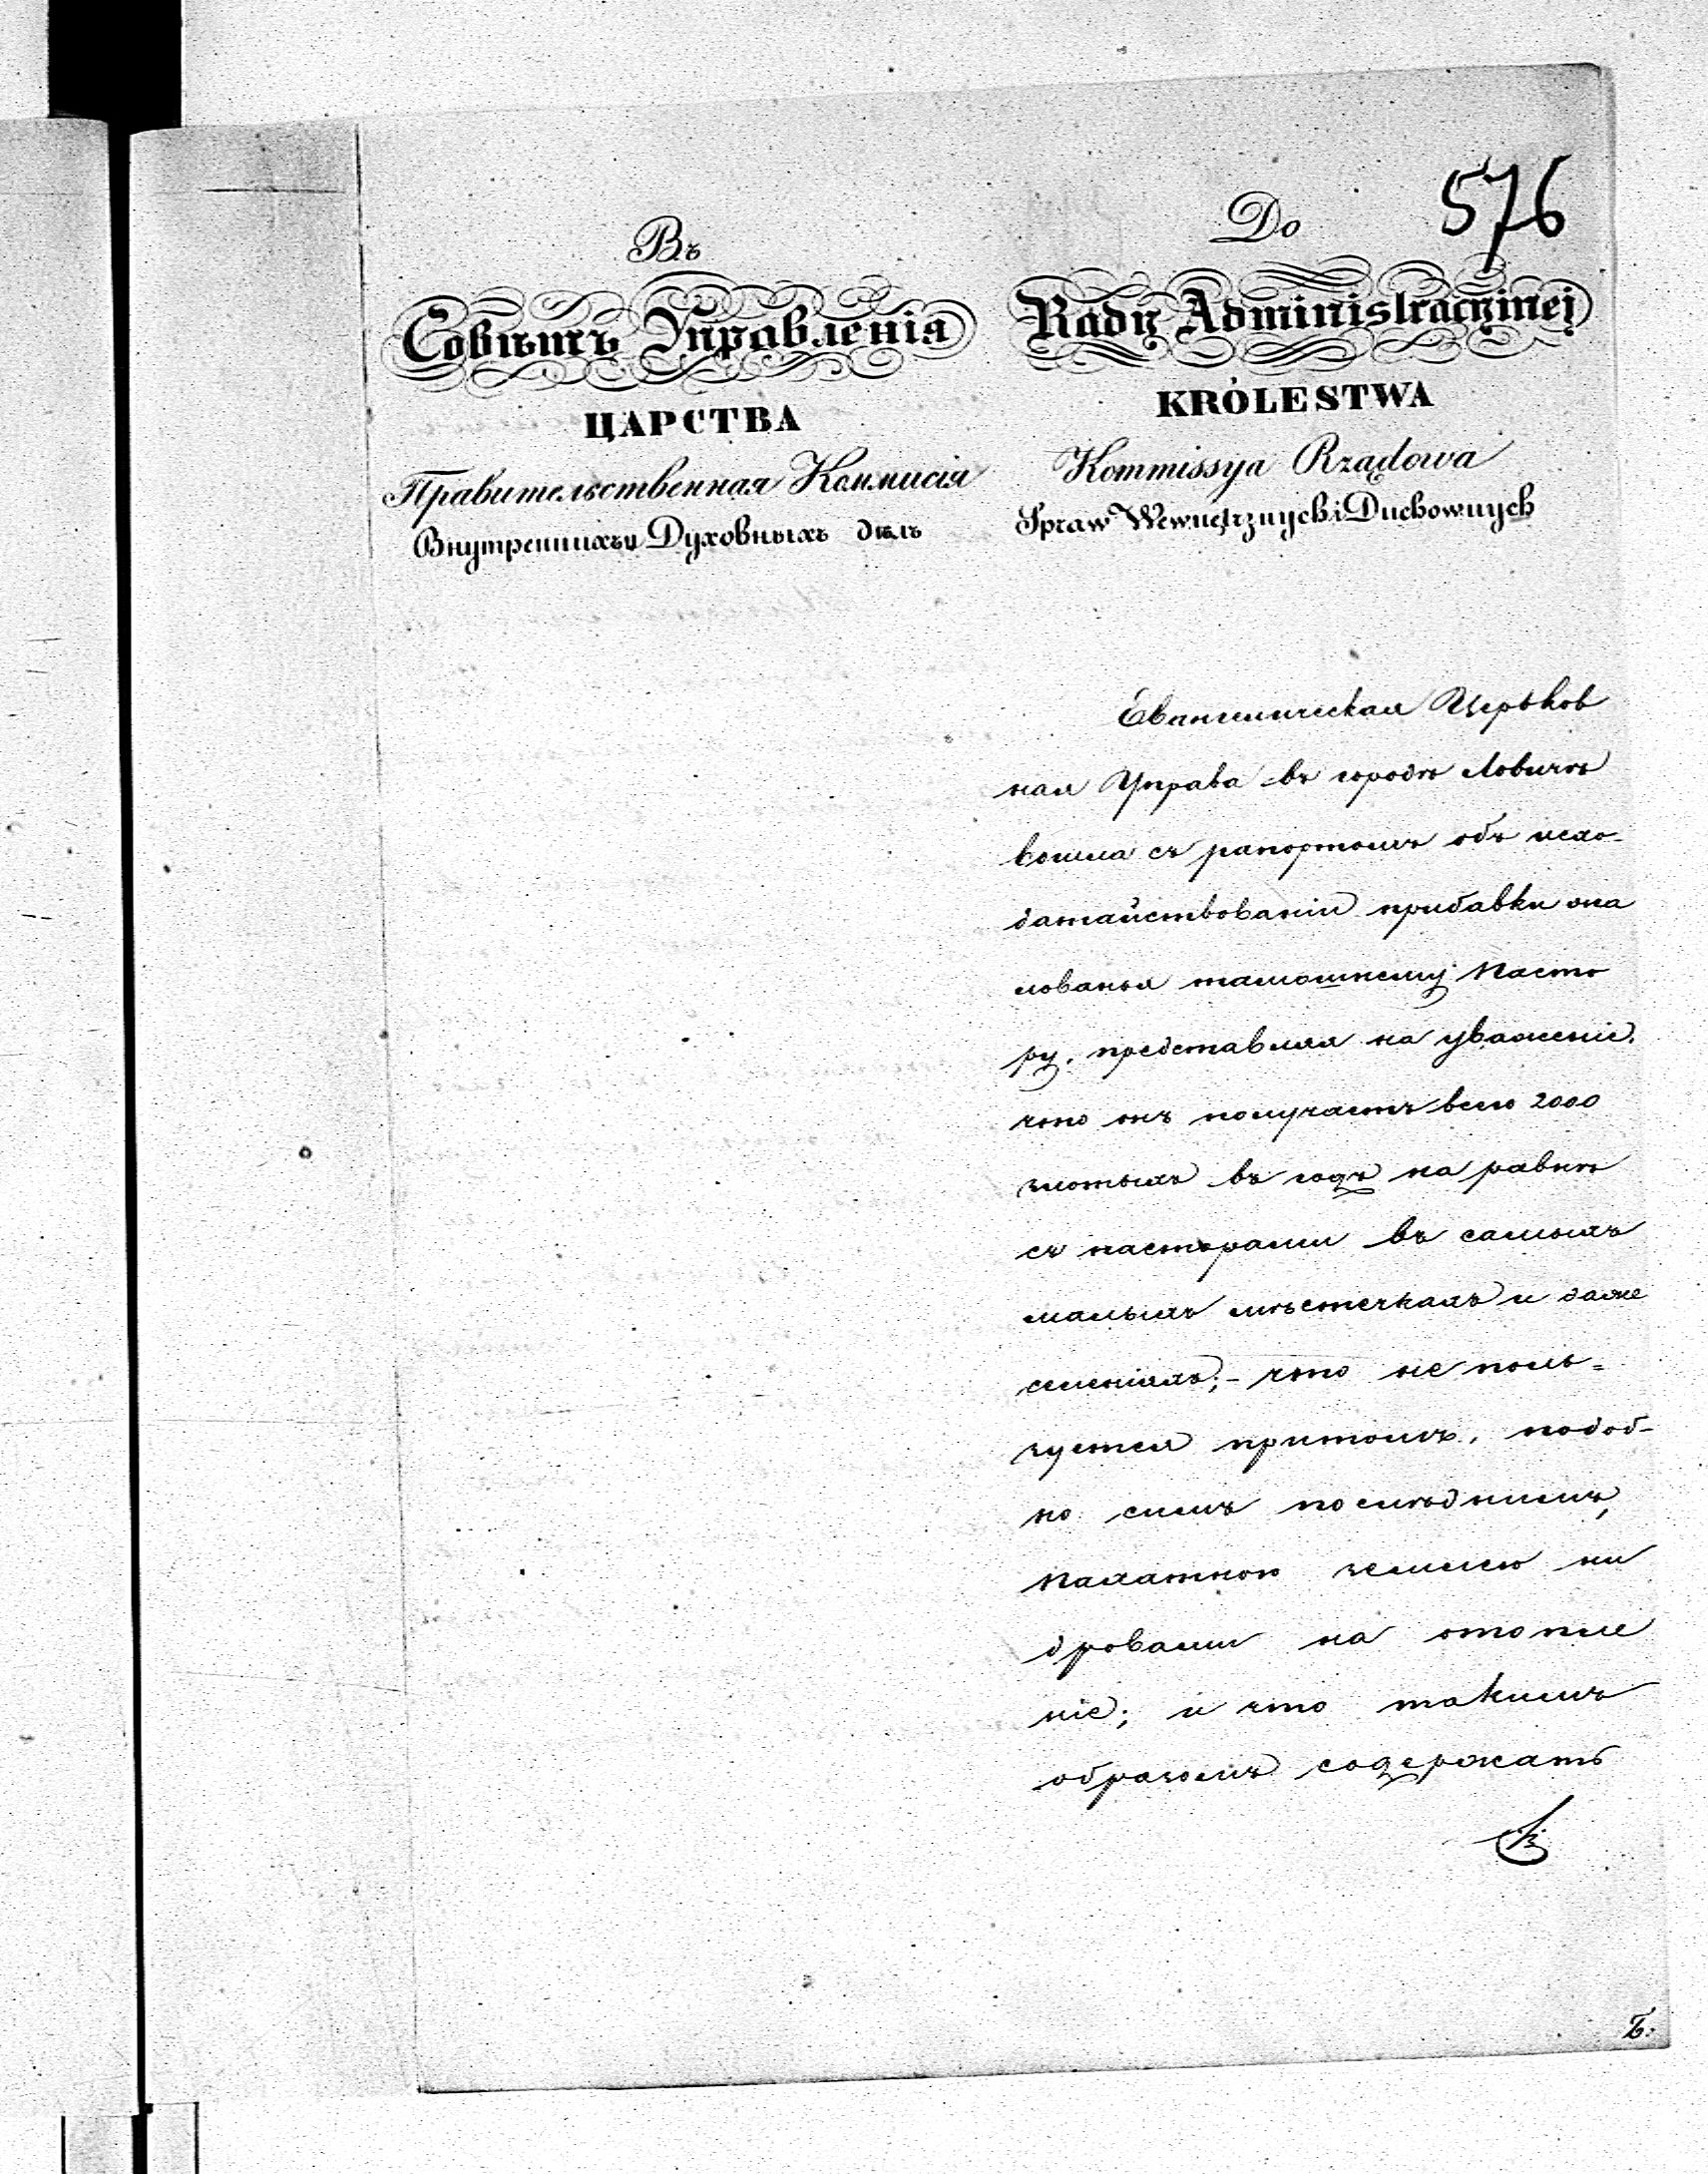 576
Въ
Совѣтъ Управленія
ЦАРСТВА
Правительственная Коммисія
Внутреннихъ и Духовныхъ дѣлъ
Do
Rady Administracyjnej
KRÓLESTWA
Kommissya Rządowa
Spraw Wewnętrznych i Duchownych
Евангелическая Церков
ная Управа въ городѣ Ловичѣ
вошла съ рапортомъ объ исхо-
датайствованіи прибавки жа
лованья тамошнему Пасто
ру, представляя на уваженіе,
что онъ получаетъ всего 2000
злотыхъ въ годъ на равнѣ
съ пасторами въ самыхъ
малыхъ мѣстечкахъ и даже
селеніяхъ; - что не поль=
зуется притомъ, подоб-
но симъ послѣднимъ,
пахатною землею ни
дровами на отопле
ніе; и что такимъ
образомъ содержать